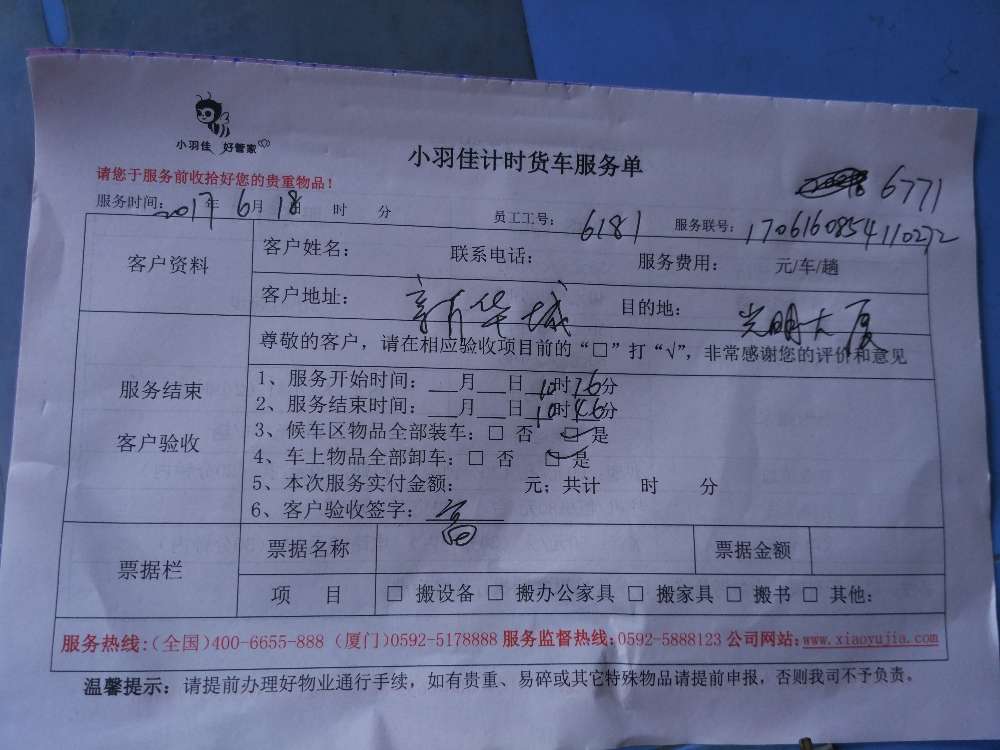 小羽佳 好管家
小羽佳计时货车服务单
请您于服务前收拾好您的贵重物品！
6771
服务时间：2017年6月18日 时 分 员工工号：6181 服务联号：1706160854110272
客户资料
客户姓名： 联系电话： 服务费用： 元/车/趟
客户地址：新华城 目的地：光明大厦
服务结束
客户验收
尊敬的客户，请在相应验收项目前的“□”打“√”，非常感谢您的评价和意见
1、服务开始时间：___月___日10时16分
2、服务结束时间：___月___日10时46分
3、候车区物品全部装车：□ 否 ☑ 是
4、车上物品全部卸车：□ 否 ☑ 是
5、本次服务实付金额： 元；共计 时 分
6、客户验收签字：高
票据栏
票据名称 票据金额
项 目 □ 搬设备 □ 搬办公家具 □ 搬家具 □ 搬书 □ 其他：
服务热线：（全国）400-6655-888（厦门）0592-5178888 服务监督热线：0592-5888123 公司网站：www.xiaoyujia.com
温馨提示：请提前办理好物业通行手续，如有贵重、易碎或其它特殊物品请提前申报，否则我司不予负责。